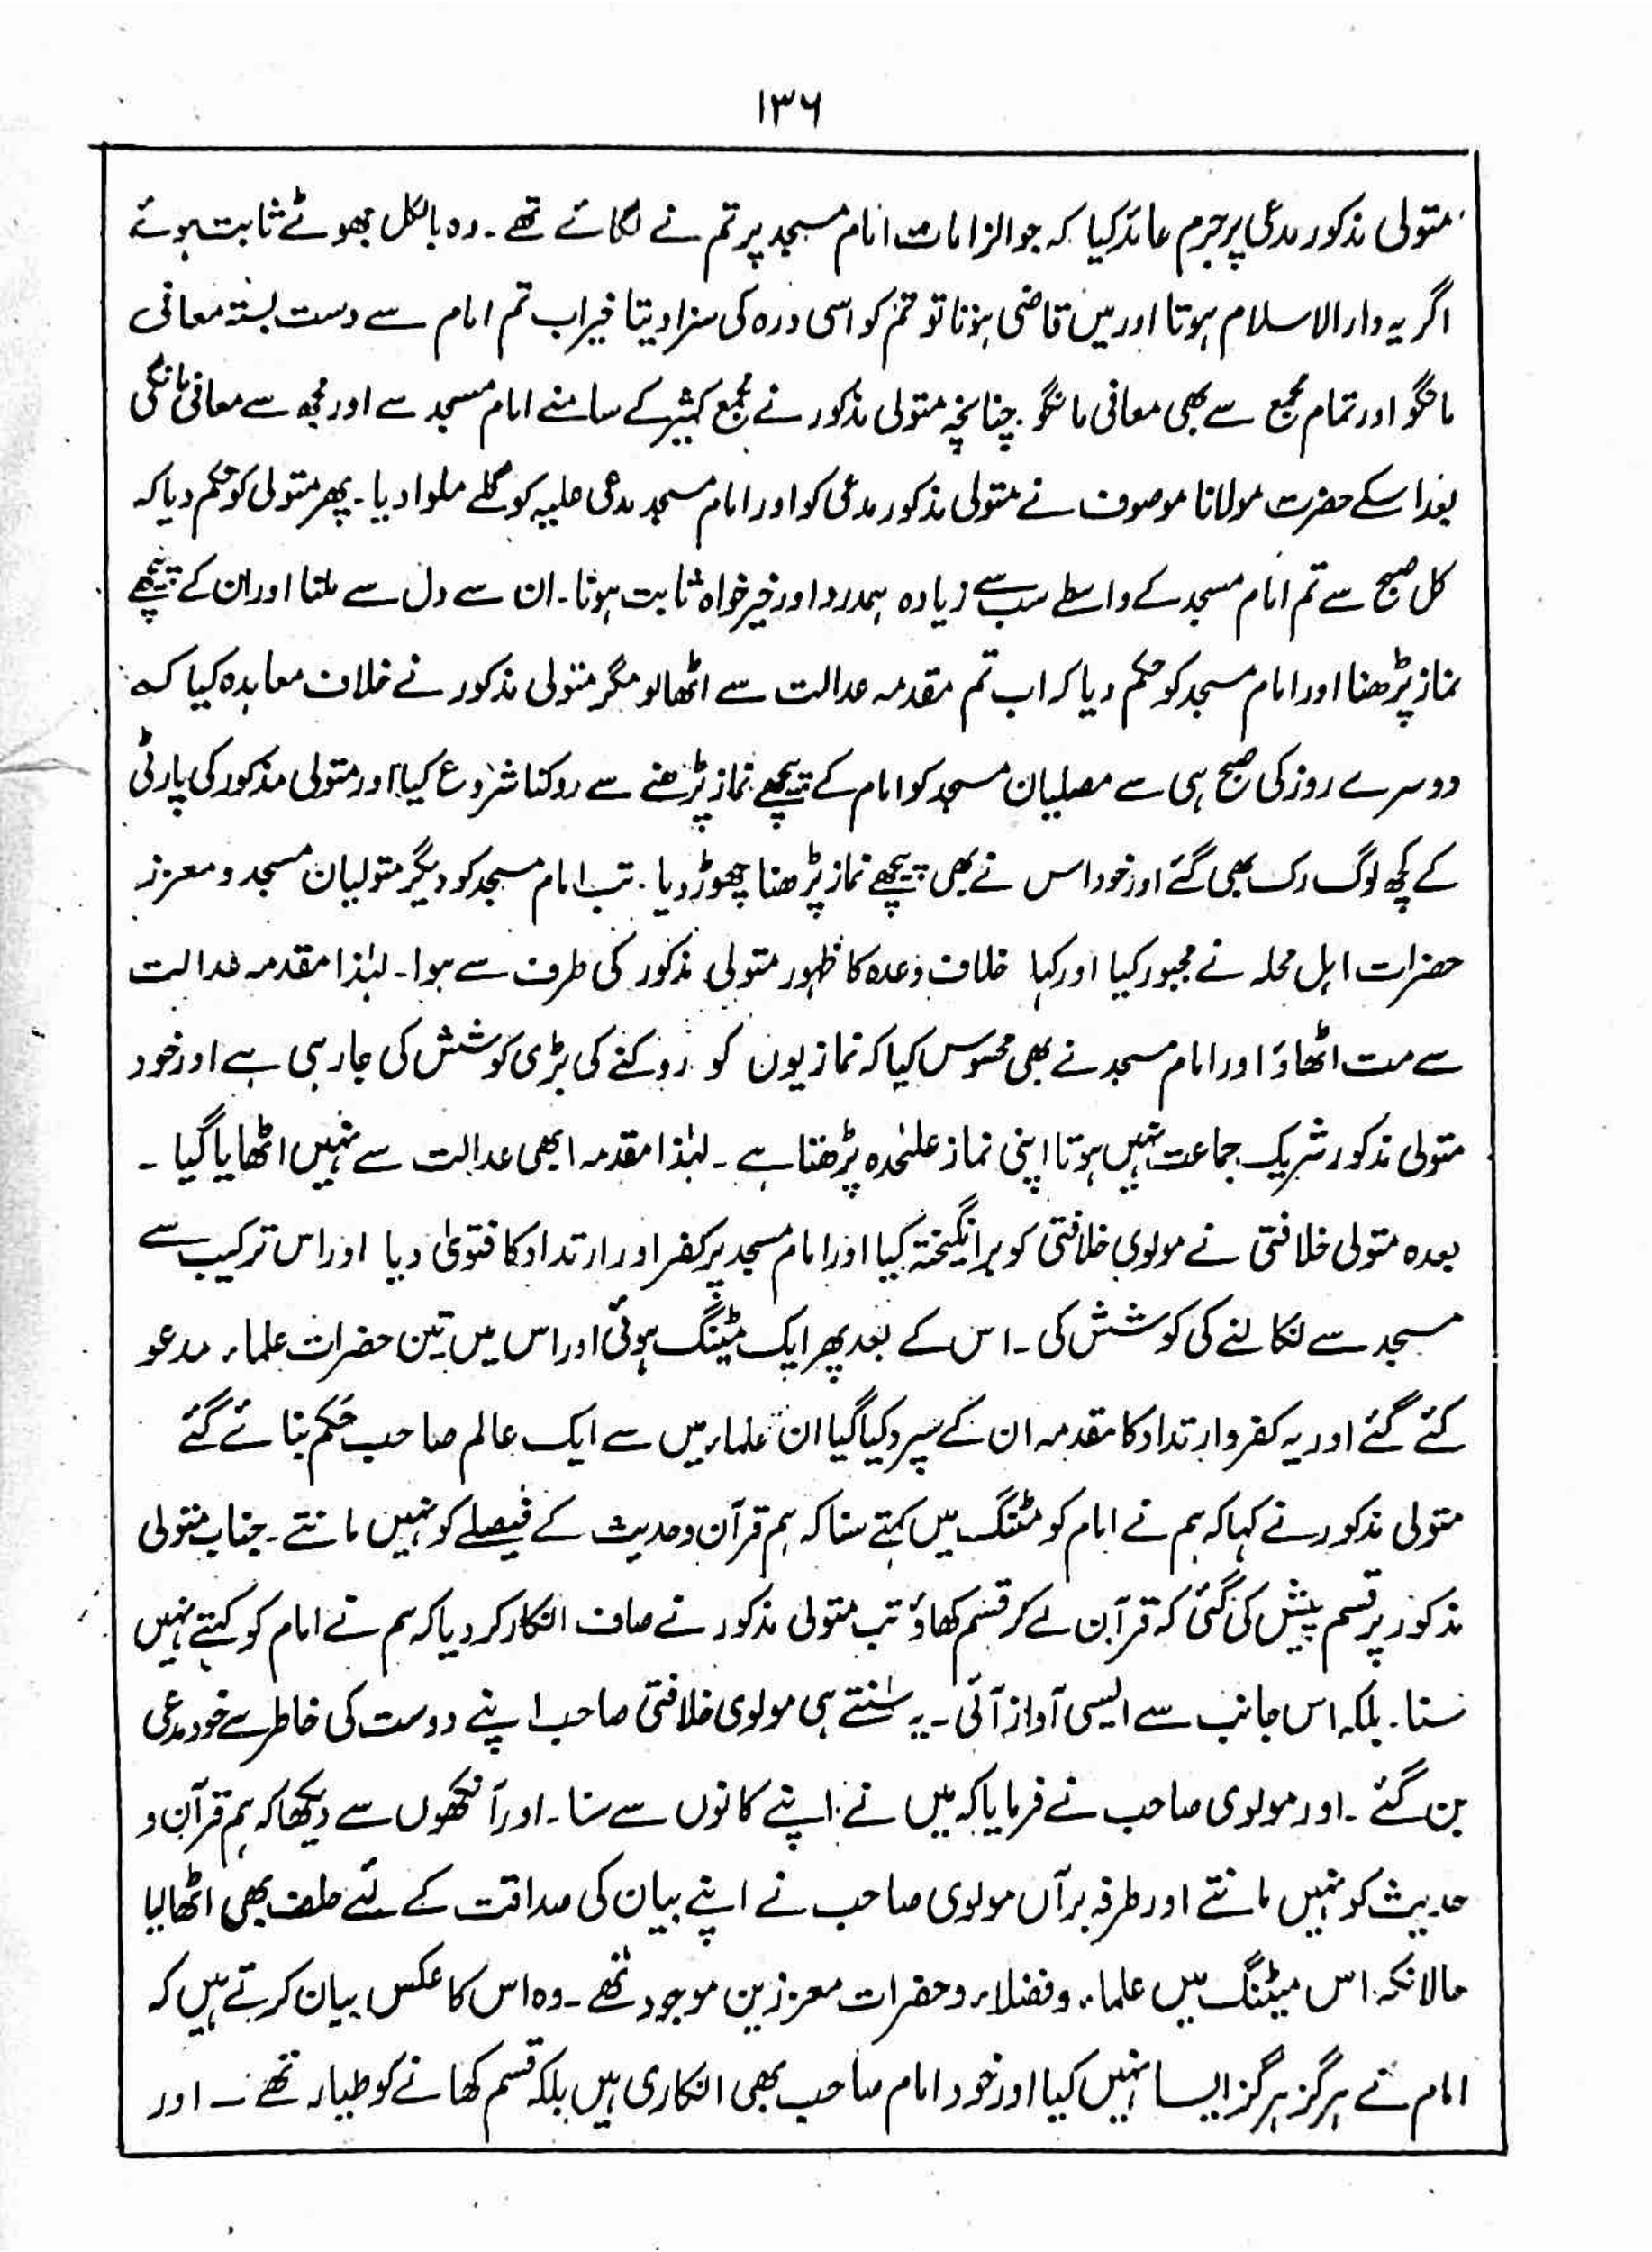 ۱۳۶
متولی مذکور مدعی پر جرم عائد کیا کہ جو الزامات امام مسجد پر تم نے لگائے تھے ۔ وہ بالکل جھوٹے ثابت ہوئے
اگر یہ دار الاسلام ہوتا اور میں قاضی ہوتا تو تم کو اسی درہ کی سزا دیتا خیر اب تم امام سے دست بستہ معافی
مانگو اور تمام مجمع سے بھی معافی مانگو ۔ چنانچہ متولی مذکور نے مجمع کثیر کے سامنے امام مسجد سے اور مجھ سے معافی مانگی
بعد اسکے حضرت مولانا موصوف نے متولی مذکور مدعی کو اور امام مسجد مدعی علیہ کو گلے ملوا دیا ۔ پھر متولی کو حکم دیا کہ
کل صبح سے تم امام مسجد کے واسطے سب سے زیادہ ہمدرد اور خیر خواہ ثابت ہونا ۔ ان سے دل سے ملنا اور ان کے پیچھے
نماز پڑھنا اور امام مسجد کو حکم دیا کہ اب تم مقدمہ عدالت سے اٹھالو مگر متولی مذکور نے خلاف معاہدہ کیا کہ
دوسرے روز کی صبح ہی سے مصلیان مسجد کو امام کے پیچھے نماز پڑھنے سے روکنا شروع کیا اور متولی مذکور کی پارٹی
کے کچھ لوگ رک بھی گئے اور خود اس نے بھی پیچھے نماز پڑھنا چھوڑ دیا ۔ تب امام مسجد کو دیگر متولیان مسجد و معزز
حضرات اہل محلہ نے مجبور کیا اور کہا خلاف وعدہ کا ظہور متولی مذکور کی طرف سے ہوا ۔ لہٰذا مقدمہ عدالت
سے مت اٹھاؤ اور امام مسجد نے بھی محسوس کیا کہ نمازیوں کو روکنے کی بڑی کوشش کی جارہی ہے اور خود
متولی مذکور شریک جماعت نہیں ہوتا اپنی نماز علیٰحدہ پڑھتا ہے ۔ لہٰذا مقدمہ ابھی عدالت سے نہیں اٹھایا گیا ۔
بعدہ متولی خلافتی نے مولوی خلافتی کو برانگیختہ کیا اور امام مسجد پر کفر اور ارتداد کا فتویٰ دیا اور اس ترکیب سے
مسجد سے نکالنے کی کوشش کی ۔ اس کے بعد پھر ایک مٹینگ ہوئی اور اس میں تین حضرات علماء مدعو
کئے گئے اور یہ کفر و ارتداد کا مقدمہ ان کے سپرد کیا گیا ان علماء میں سے ایک عالم صاحب حَکم بنائے گئے
متولی مذکور نے کہا کہ ہم نے امام کو مٹنگ میں کہتے سنا کہ ہم قرآن و حدیث کے فیصلے کو نہیں مانتے ۔ جناب متولی
مذکور پر قسم پیش کی گئی کہ قرآن لے کر قسم کھاؤ تب متولی مذکور نے صاف انکار کر دیا کہ ہم نے امام کو کہتے نہیں
سنا ۔ بلکہ اس جانب سے ایسی آواز آئی ۔ یہ سنتے ہی مولوی خلافتی صاحب اپنے دوست کی خاطر سے خود مدعی
بن گئے ۔ اور مولوی صاحب نے فرمایا کہ میں نے اپنے کانوں سے سنا ۔ اور آنکھوں سے دیکھا کہ ہم قرآن و
حدیث کو نہیں مانتے اور طرفہ برآں مولوی صاحب نے اپنے بیان کی صداقت کے لئے حلف بھی اٹھالیا
حالانکہ اس میٹنگ میں علماء و فضلاء و حضرات معززین موجود تھے ۔ وہ اس کا عکس بیان کرتے ہیں کہ
امام نے ہرگز ہرگز ایسا نہیں کیا اور خود امام صاحب بھی انکاری ہیں بلکہ قسم کھانے کو طیار تھے ۔ اور